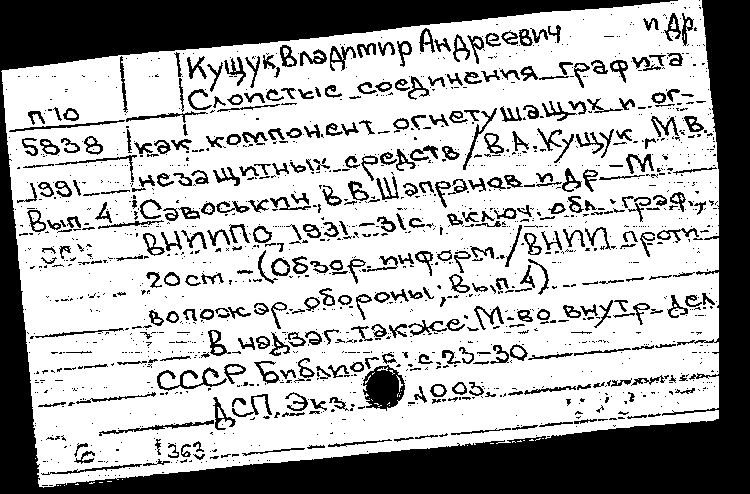 Кущук, Владимир Андреевич и др.
Слоистые соединения графита
П10
5838 как компонент огнетушащих и ог-
1991 незащитных средств / В.А. Кущук, М.В.
Вып. 4 Савоськин, В.В. Шапранов и др. – М.:
ВНИИПО, 1991. – 31 с., включ. обл.: граф.;
20 см. – (Обзор. информ. / ВНИИ проти-
вопожар. обороны; Вып. 4)
В надзаг. также: М-во внутр. дел
СССР. Библиогр.: с. 23-30
ДСП. Экз. 1003.
б 363